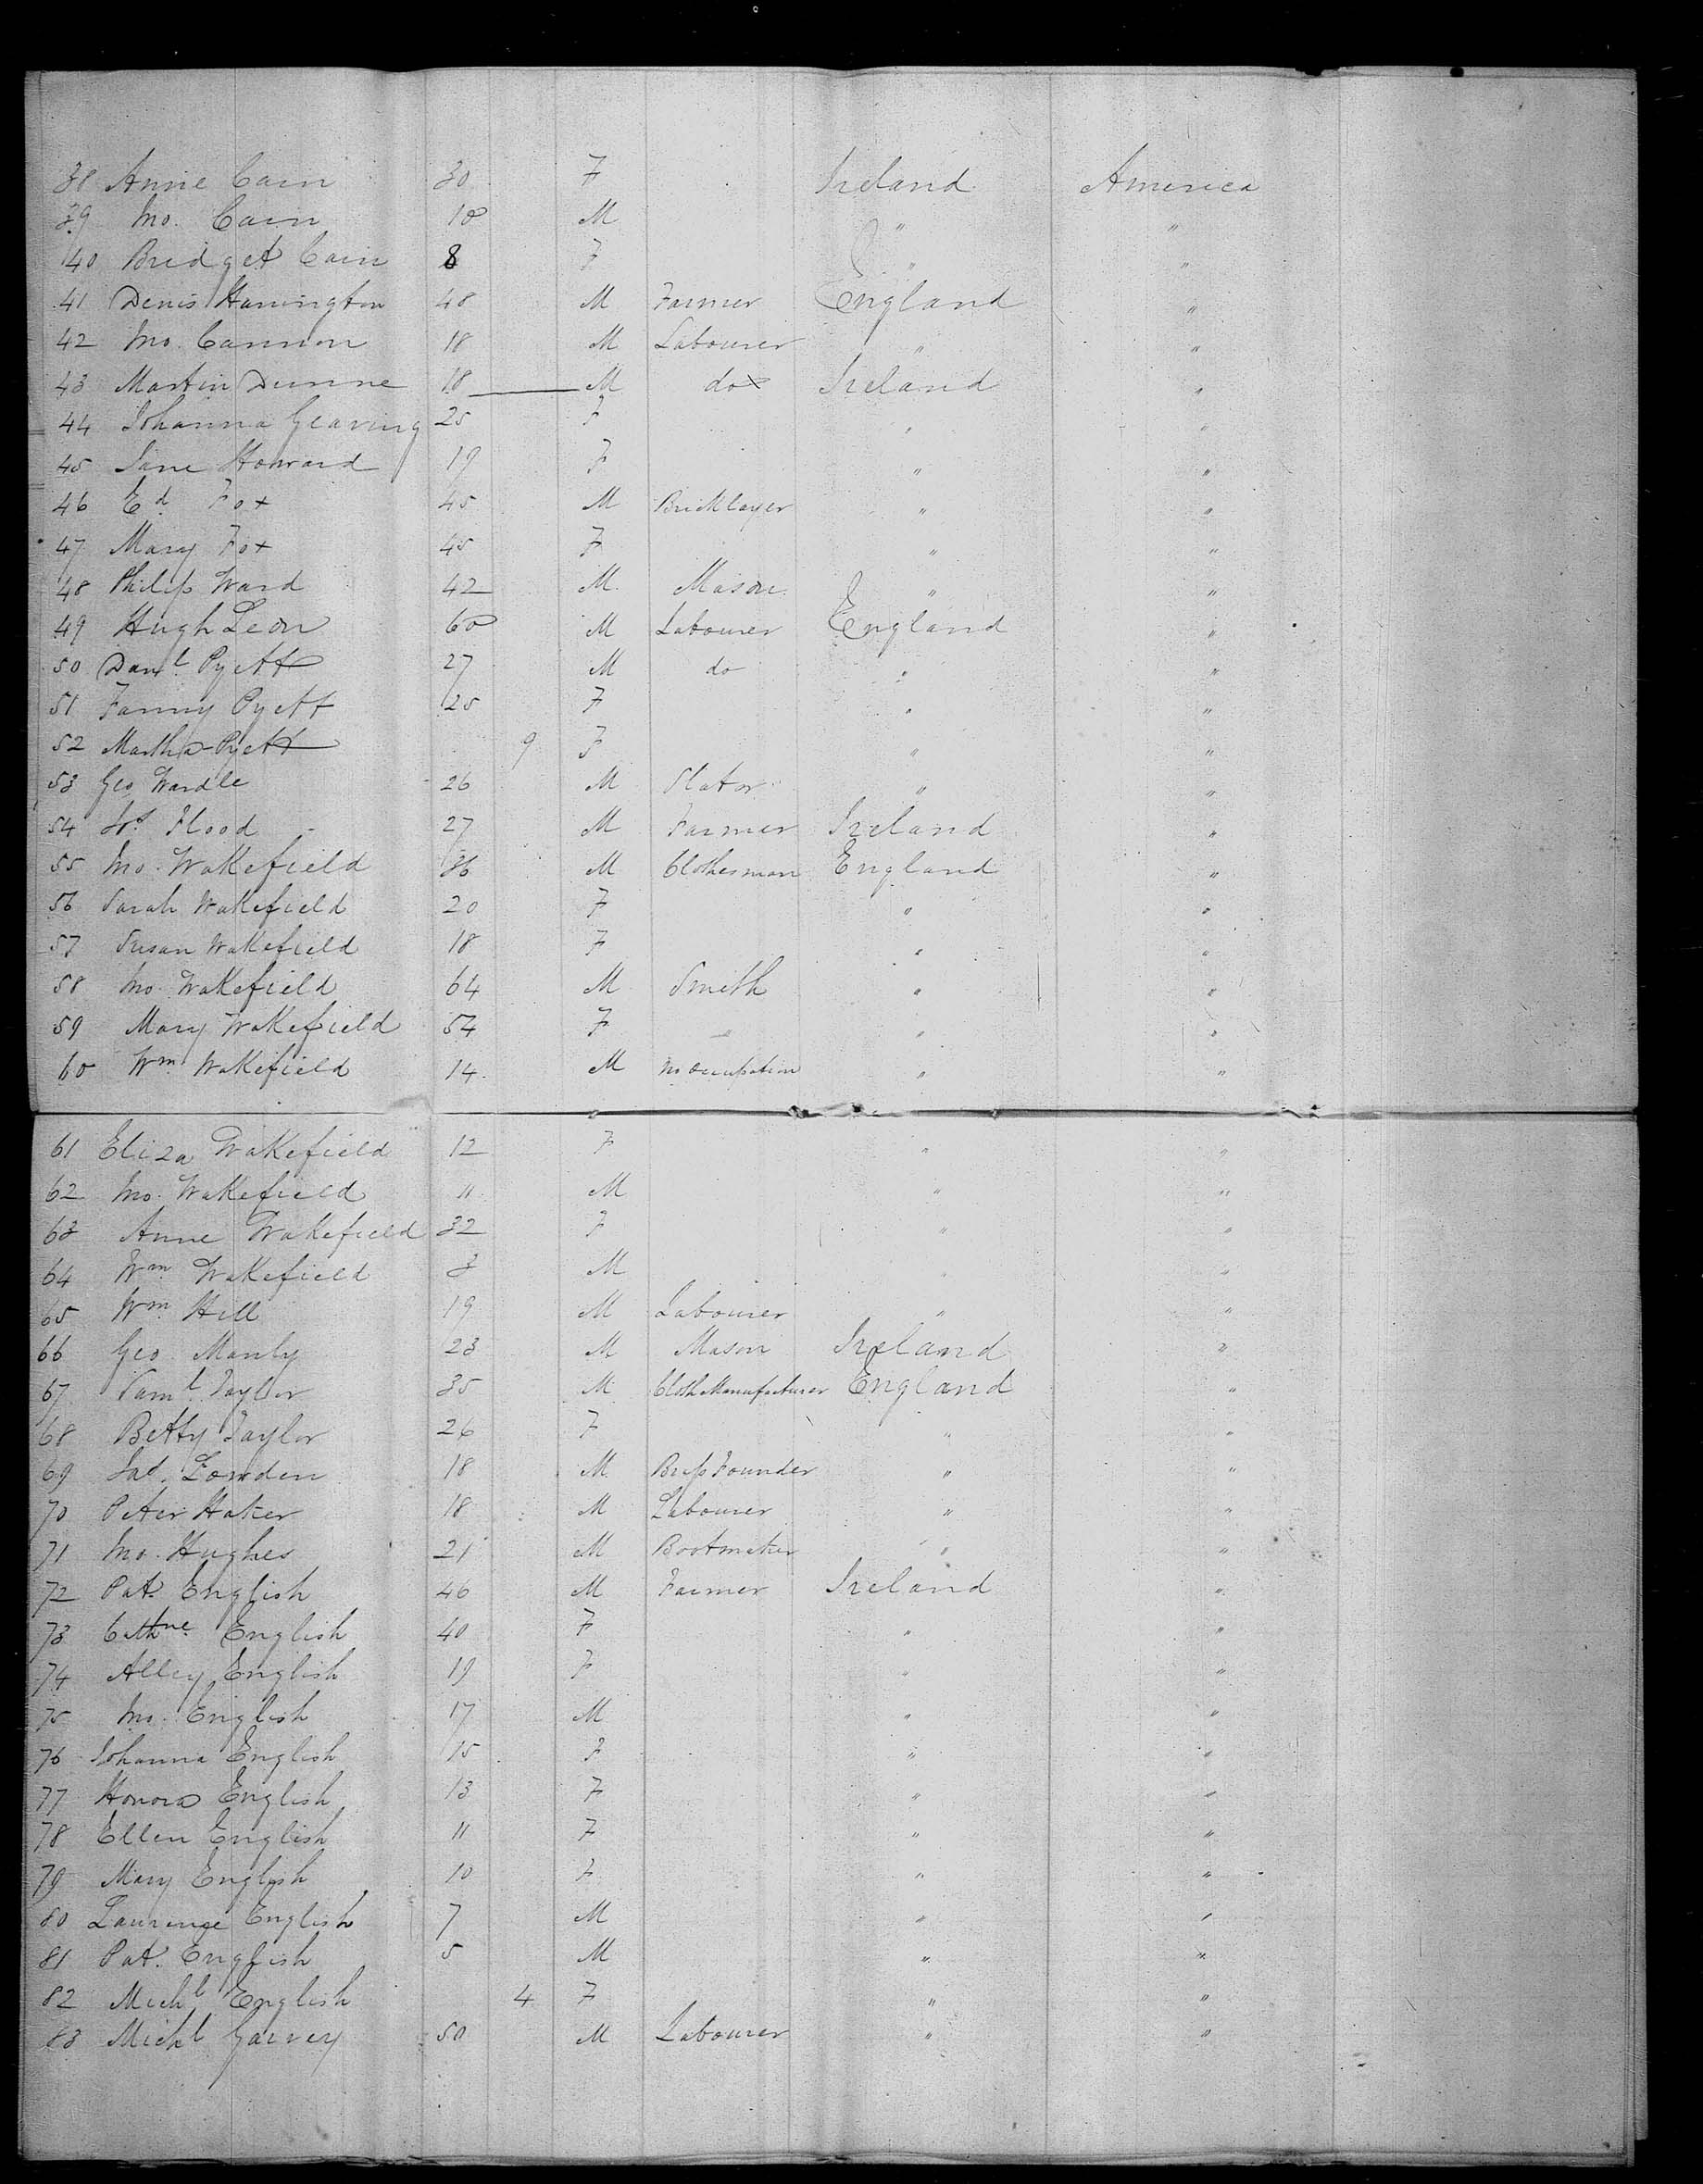 38 Anne Cain 30 F Ireland America
39 Jno. Cain 10 M " "
40 Bridget Cain 8 F " "
41 Denis Hanington 48 M Farmer England "
42 Jno. Cannon 18 M Labourer " "
43 Martin Dunne 18 M do Ireland "
44 Johanna Gearing 25 F " "
45 Jane Howard 19 F " "
46 Ed. Fox 45 M Bricklayer " "
47 Mary Fox 45 F " "
48 Philip Ward 42 M Mason " "
49 Hugh Leon 60 M Labourer England "
50 Danl. Pyett 27 M do " "
51 Fanny Pyett 25 F " "
52 Martha Pyett 9 F " "
53 Geo Wardle 26 M Slator " "
54 Flood 27 M Farmer Ireland "
55 Jno. Wakefield 36 M Clothesman England "
56 Sarah Wakefield 20 F " "
57 Susan Wakefield 18 F " "
58 Jno. Wakefield 64 M Smith " "
59 Mary Wakefield 54 F " " "
60 Wm. Wakefield 14 M No occupation " "
61 Eliza Wakefield 12 F " "
62 Jno. Wakefield 11 M " "
63 Anne Wakefield 32 F " "
64 Wm. Wakefield 3 M " "
65 Wm. Hill 19 M Labourer " "
66 Geo. Manly 23 M Mason Ireland "
67 Saml. Taylor 35 M Cloth Manufacturer England "
68 Betty Taylor 26 F " "
69 Jas. Lowden 18 M Brass Founder " "
70 Peter Haker 18 M Labourer " "
71 Jno. Hughes 21 M Bootmaker " "
72 Pat. English 46 M Farmer Ireland "
73 Cathne. English 40 F " "
74 Alley English 19 F " "
75 Jno. English 17 M " "
76 Johanna English 15 F " "
77 Honora English 13 F " "
78 Ellen English 11 F " "
79 Mary English 10 F " "
80 Laurence English 7 M " "
81 Pat. English 5 M " "
82 Michl English 4 F " "
83 Michl Garvey 50 M Labourer " "